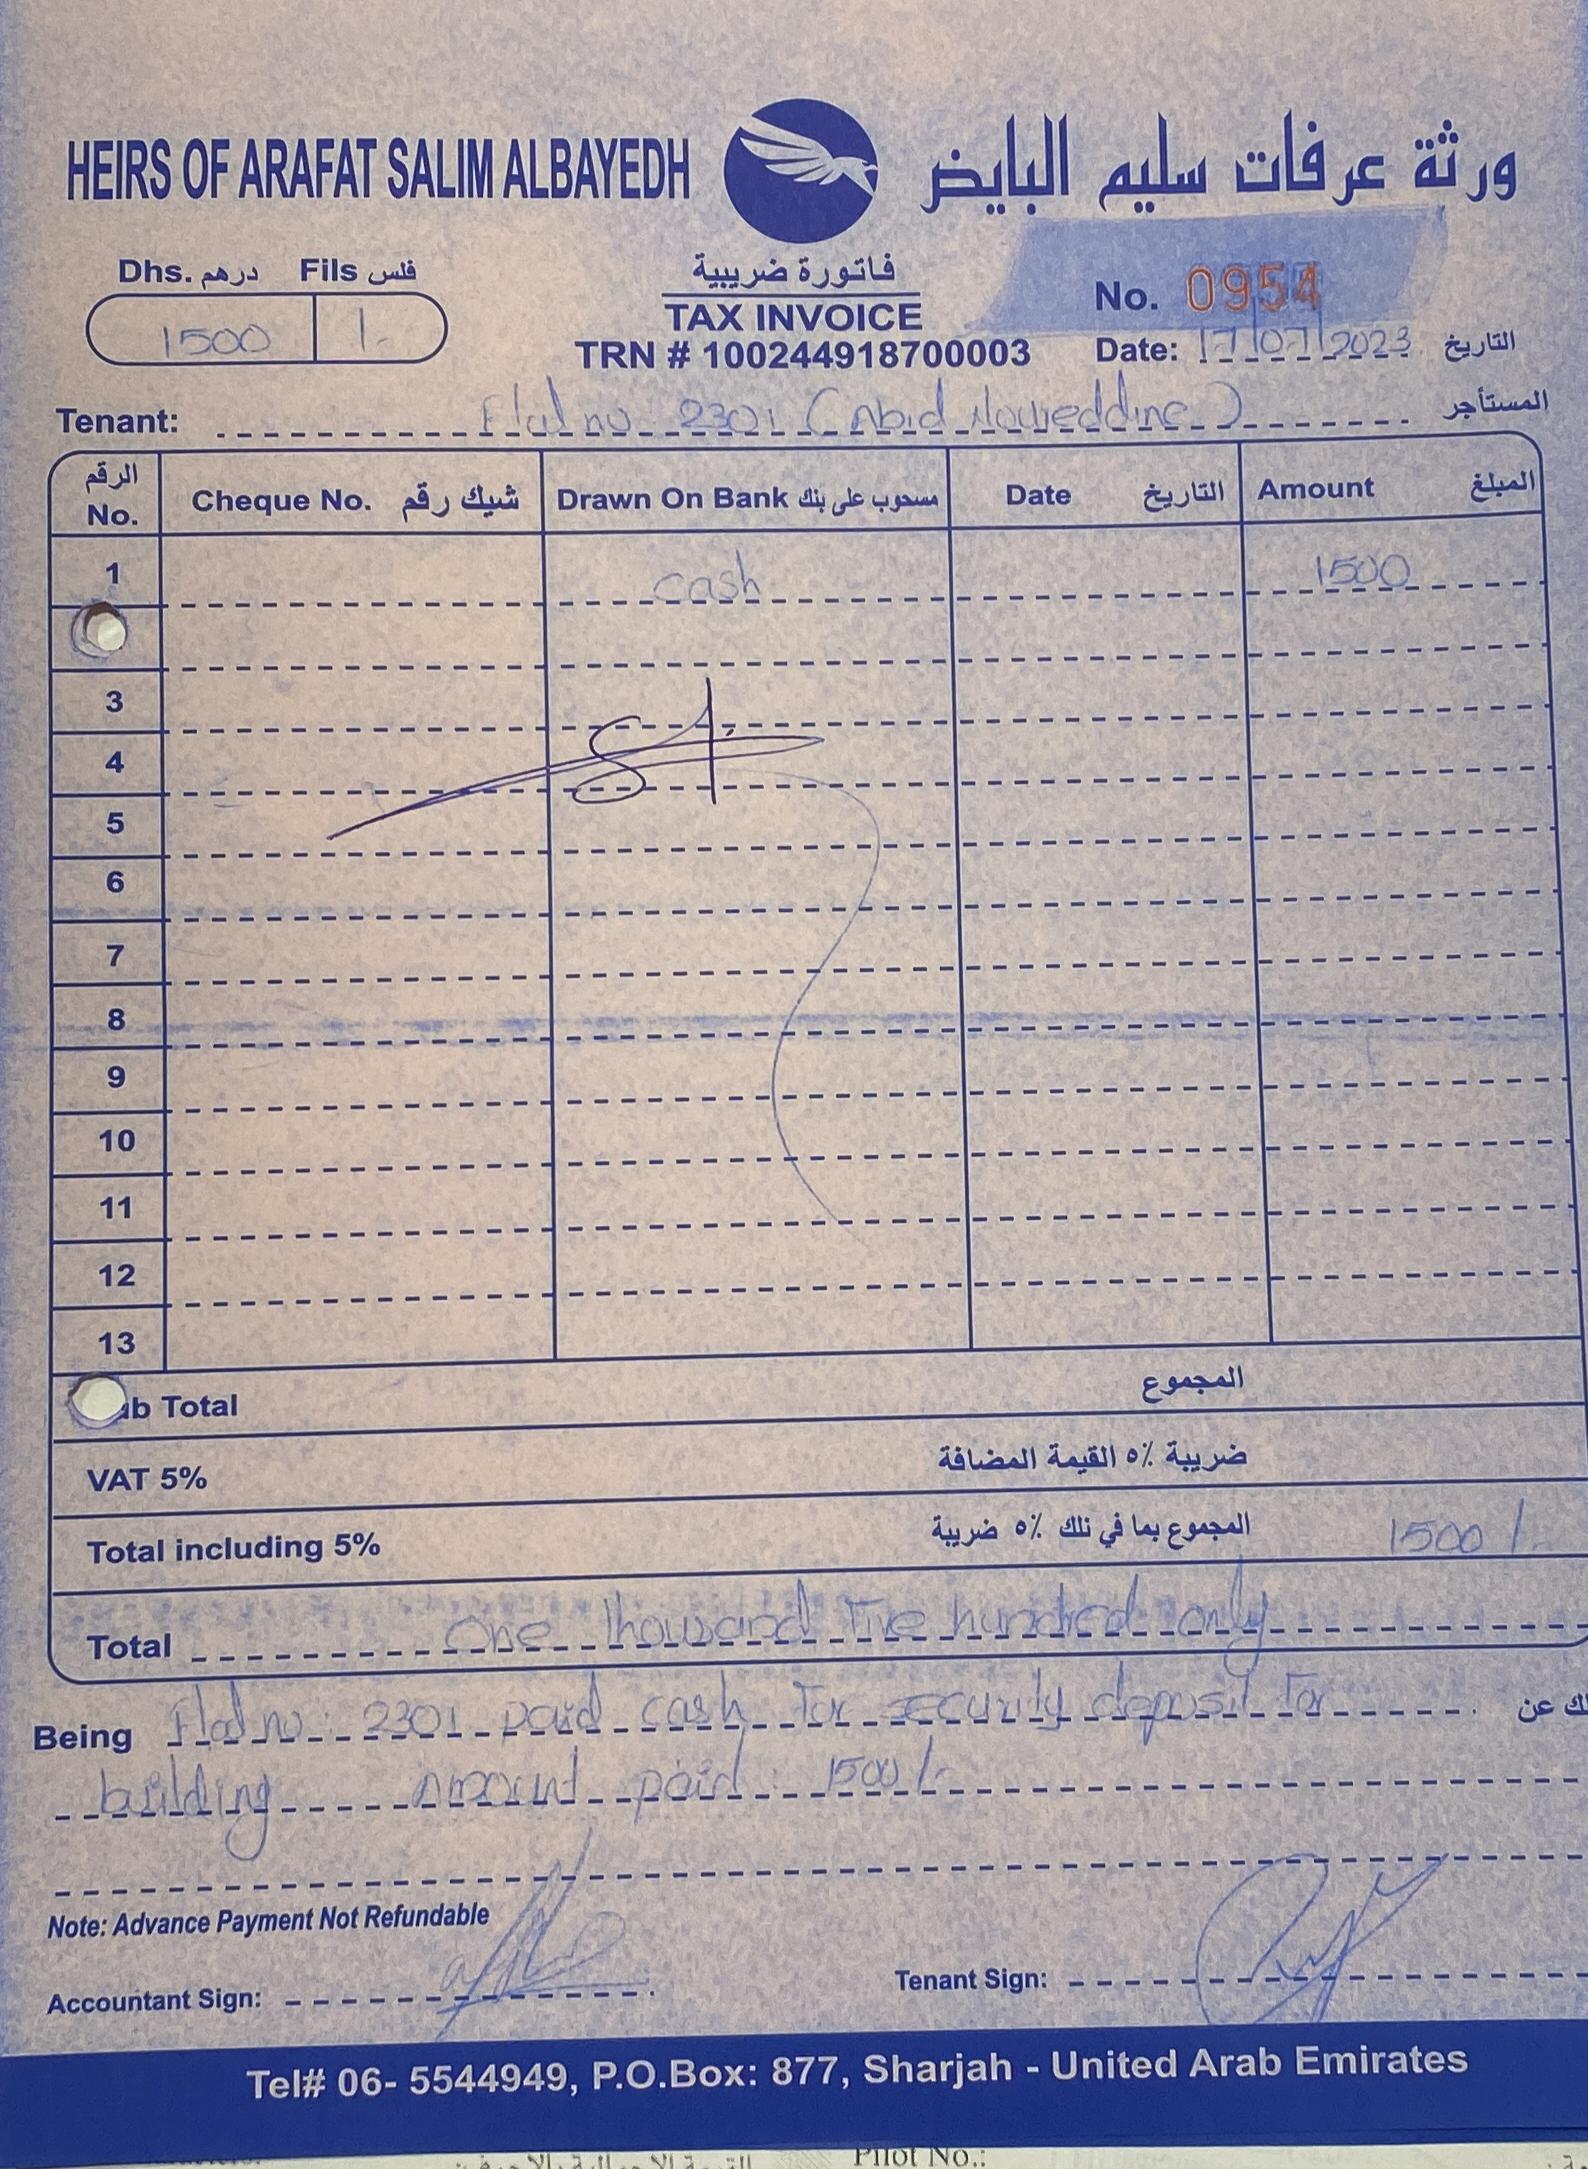 HEIRS OF ARAFAT SALIM ALBAYEDH ورثة عرفات سليم البايض
Dhs. درهم Fils فلس
1500 /-
فاتورة ضريبية
TAX INVOICE
TRN # 100244918700003
No. 0954
Date: 17/07/2023 التاريخ
Tenant: Flat no 2301 (Abid Noureddine) المستأجر
الرقم No. Cheque No. شيك رقم Drawn On Bank مسحوب على بنك Date التاريخ Amount المبلغ
1 cash 1500
3
4
5
6
7
8
9
10
11
12
13
ub Total المجموع
VAT 5% ضريبة ٥٪ القيمة المضافة
Total including 5% المجموع بما في ذلك ٥٪ ضريبة 1500/-
Total One Thousand Five hundred only
Being Flat no: 2301 paid cash for security deposit for لك عن
building amount paid: 1500/-
Note: Advance Payment Not Refundable
Accountant Sign: Tenant Sign:
Tel# 06- 5544949, P.O.Box: 877, Sharjah - United Arab Emirates
Pilot No.: